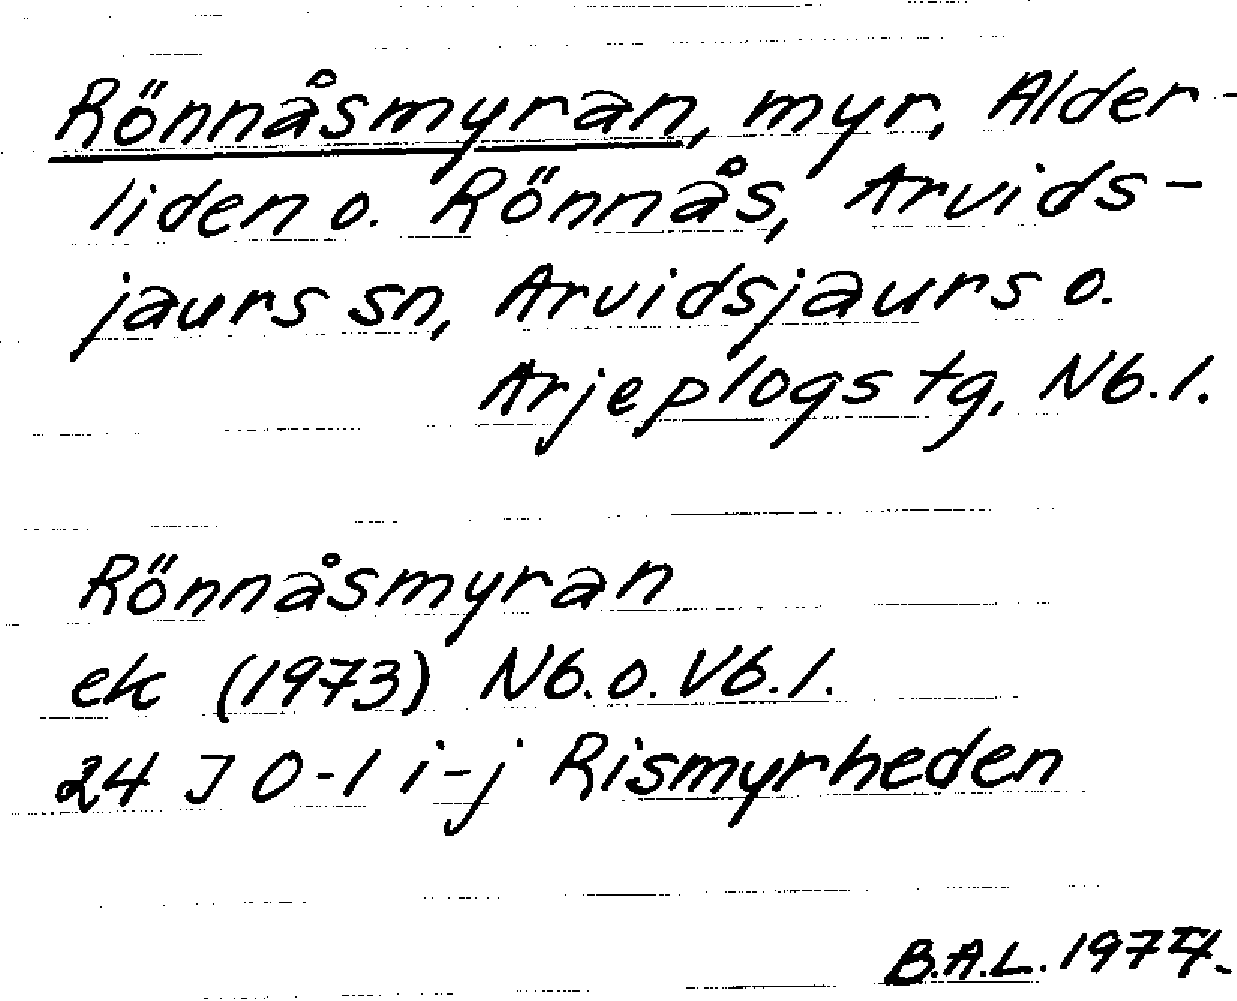 Rönnåsmyran, myr, Alder-
liden o. Rönnås, Arvids-
jaurs sn, Arvidsjaurs o.
Arjeplogs tg, Nb. l.
Rönnåsmyran
ek (1973) Nb. o. Vb. l.
24 J 0-1 i-j Rismyrheden
B.A.L. 1974.